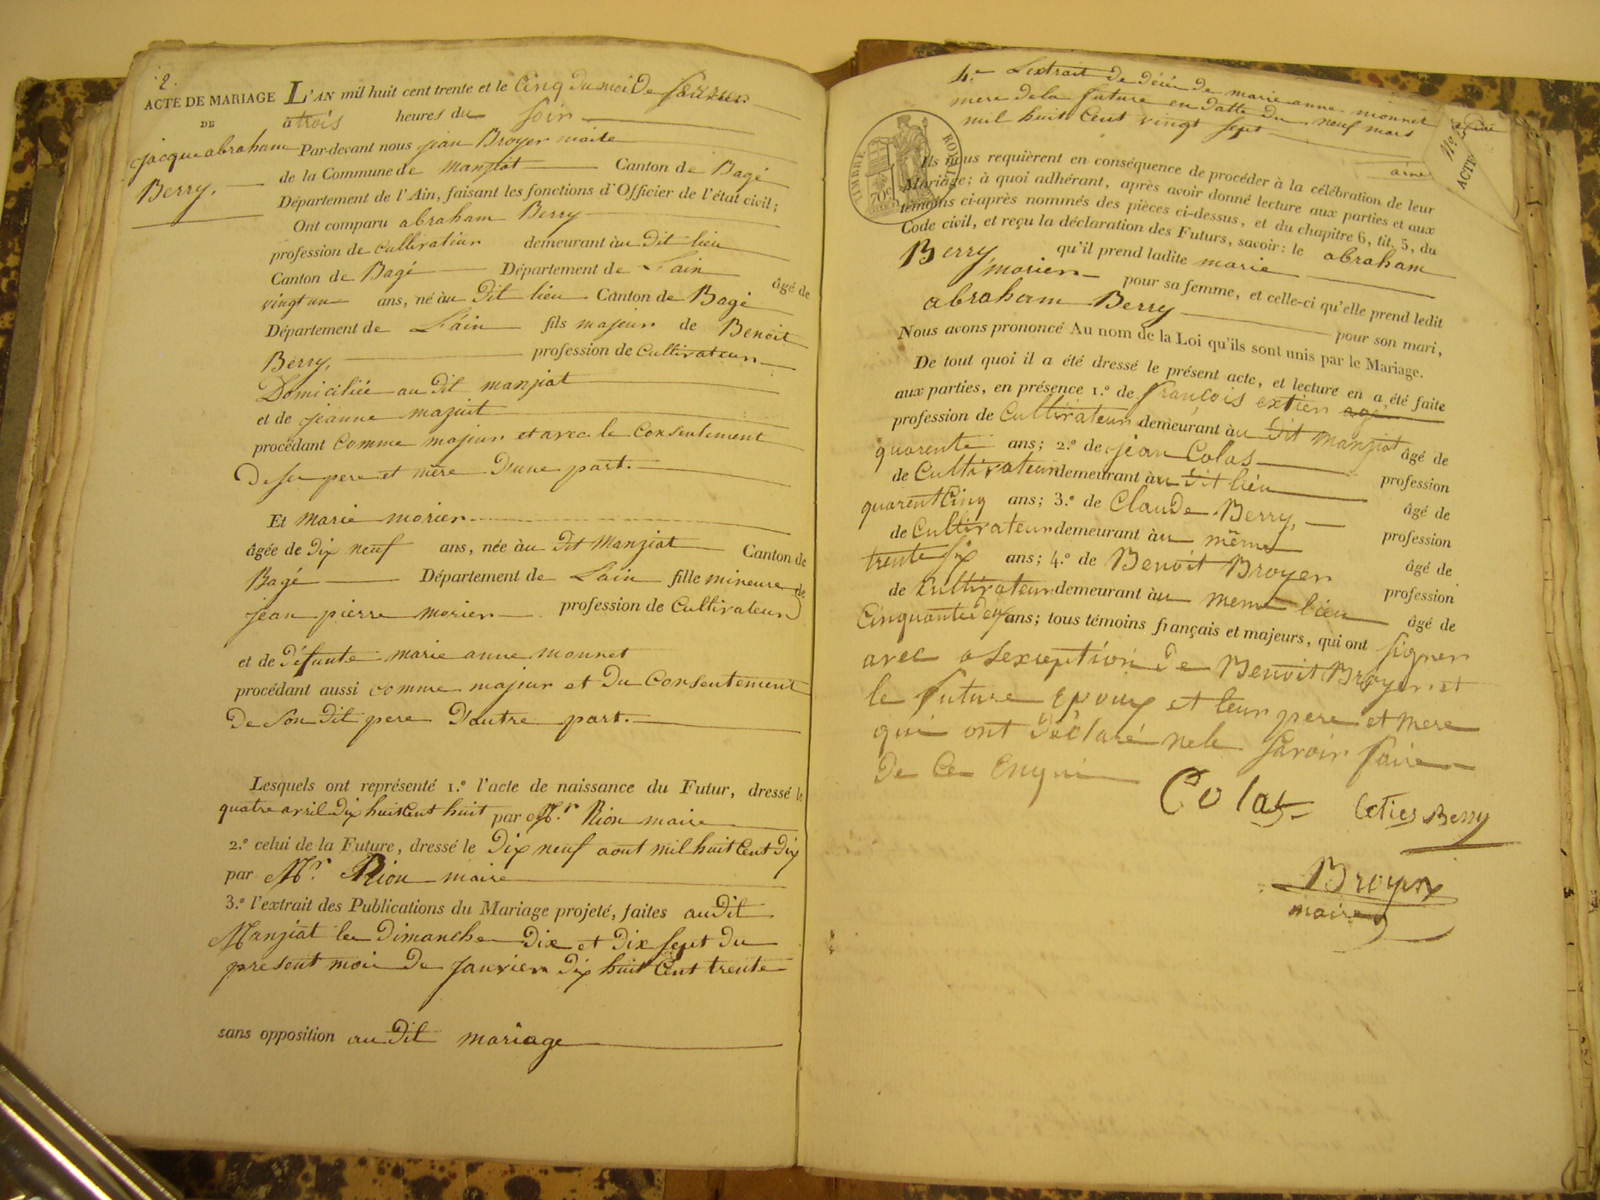 2.
ACTE DE MARIAGE
DE
jacque abraham
Berry.
L'AN mil huit cent trente et le Cinq du moi De
à trois heures du Soir
Par-devant nous jean Broyer maire
de la Commune de manziat Canton de Bagé
Département de l'Ain, faisant les fonctions d'Officier de l'état civil;
Ont comparu abraham Berry
profession de cultivateur demeurant àu Dit lieu
Canton de Bagé Département de L'ain âgé de
vingt un ans, né àu Dit lieu Canton de Bagé
Département de L'ain fils majeur de Benoit
Berry, profession de Cultivateur
Domiciliée au Dit manziat
et de jeanne
procédant Comme majeur et avec le Consentement
De Ses pere et mère D'une part.
Et marie morier
âgée de Dix neuf ans, née àu Dit Manziat Canton de
Bagé Département de L'ain fille mineure de
jean pierre morier profession de Cultivateur
et de Défunte marie anne monnet
procédant aussi comme majeur et Du Consentement
De Son Dit pere D'autre part.
Lesquels ont représenté 1.º l'acte de naissance du Futur, dressé le
quatre avril Dix huit Cent huit par Mr. Rion maire
2.º celui de la Future, dressé le Dix neuf aout mil huit Cent Dix
par Mr. Rion maire
3.º l'extrait des Publications du Mariage projeté, faites au Dit
Manziat les Dimanche Dix et Dix Sept Du
present moi De Janvier Dix huit Cent trente
sans opposition au Dit mariage
4.e L'extrait De décé De marie anne monnet
mere de la future en Datte Du neuf mars
mil huit Cent vingt Sept
TIMBRE ROYAL
70c
ACTE
Ils nous requièrent en conséquence de procéder à la célébration de leur
Mariage; à quoi adhérant, après avoir donné lecture aux parties et aux
témoins ci-après nommés des pièces ci-dessus, et du chapitre 6, tit. 5, du
Code civil, et reçu la déclaration des Futurs, savoir: le abraham
Berry qu'il prend ladite marie
morier pour sa femme, et celle-ci qu'elle prend ledit
abraham Berry pour son mari,
Nous avons prononcé Au nom de la Loi qu'ils sont unis par le Mariage.
De tout quoi il a été dressé le présent acte, et lecture en a été faite
aux parties, en présence 1.º de françois extier agé
profession de Cultivateur demeurant àu Dit Manziat âgé de
quarente ans; 2.º de jean Colas profession
de Cultivateur demeurant àu Dit lieu âgé de
quarent Cinq ans; 3.º de Claude Berry, profession
de Cultivateur demeurant àu même âgé de
trente Six ans; 4.º de Benoit Broyer profession
de Cultivateur demeurant àu meme lieu âgé de
Cinquante ans; tous témoins français et majeurs, qui ont Signer
avec a Lexception De Benoit Broyer et
le future Epoux et leur pere et mere
qui ont Déclaré ne le Savoir faire
De Ce Enqui
Colas Berry
Broyer
maire